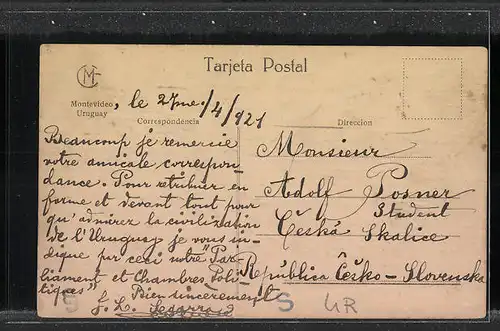 Tarjeta Postal
CM
Montevideo, le 27me/4/921
Uruguay
Correspondencia
Direccion
Beaucoup je remercie
votre amicale correspon-
dance. Pour retribuer en
forme et devant tout pour
qu'admirez la civilization
de l'Uruguay je vous in-
dique par ceci notre "Par-
liament et Chambres Poli-
tiques"
Bien sincerement
J. L.
Monsieur
Adolf Posner
Student
Česká Skalice
República Česko-Slovenska
S
S
UR